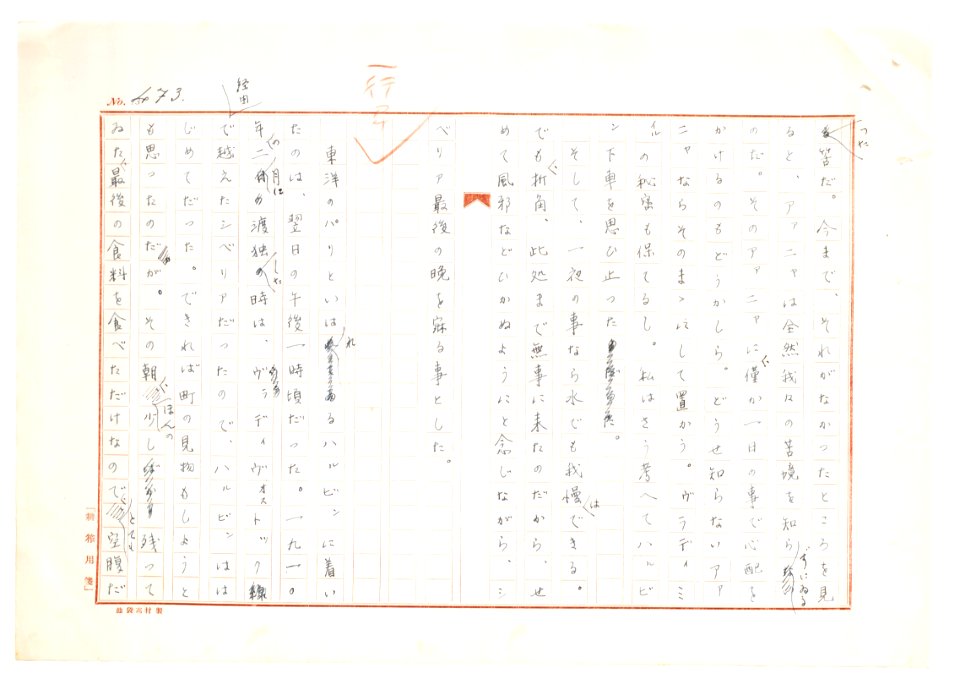 No. 73.
一行アキ
つた
筈だ。今まで、それがなかつたところを見
ると、アァニャは全然我々の苦境を知らずにゐる
のだ。そのアァニャに僅か一日の事で心配を
かけるのもどうかしら。どうせ知らないアァ
ニャならそのまゝにして置かう。ヴラディミ
ルの秘密も保てるし。私はさう考へてハルビ
ン下車を思ひ止つた。
そして、一夜の事なら水でも我慢はできる。
でも折角、此処まで無事に来たのだから、せ
めて風邪などひかぬようにと念じながら、シ
ベリア最後の晩を寐る事とした。
東洋のパリといはれるハルビンに着い
たのは、翌日の午後一時頃だった。一九一〇
年二月に渡独した時は、ヴラディヴォストック線
経由
で越えたシベリアだったので、ハルビンはは
じめてだった。できれば町の見物もしようと
も思ったのだが。その朝、ほんの少し残って
ゐた最後の食料を食べただけなので、とても空腹だ